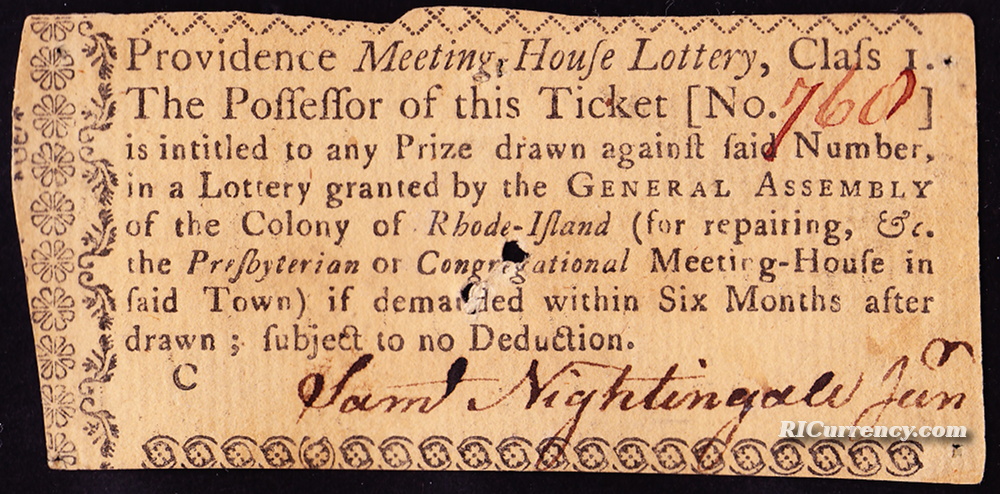 Providence Meeting-Houſe Lottery, Claſs 1.
The Poſſeſſor of this Ticket [No. 760]
is intitled to any Prize drawn againſt ſaid Number,
in a Lottery granted by the GENERAL ASSEMBLY
of the Colony of Rhode-Iſland (for repairing, &c.
the Preſbyterian or Congregational Meeting-Houſe in
ſaid Town) if demanded within Six Months after
drawn ; ſubject to no Deduction.
C
Sam! Nightingale Junr
RICurrency.com